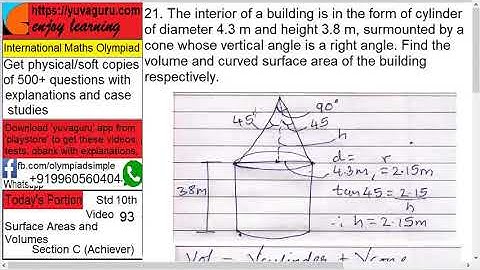 https://yuvaguru.com
enjoy learning
International Maths Olympiad
Get physical/soft copies
of 500+ questions with
explanations and case
studies
Download 'yuvaguru' app from
'playstore' to get these videos,
tests, qbank with explanations,
fb.com/olympiadsimple
Whatsapp +919960560404
Today's Portion Std 10th
Video 93
Surface Areas and
Volumes
Section C (Achiever)
21. The interior of a building is in the form of cylinder
of diameter 4.3 m and height 3.8 m, surmounted by a
cone whose vertical angle is a right angle. Find the
volume and curved surface area of the building
respectively.
90°
45° 45
h
d= r
4.3m, = 2.15m
tan45 = 2.15
h
∴ h = 2.15m
3.8m
Vol = Vcylinder + Vcone